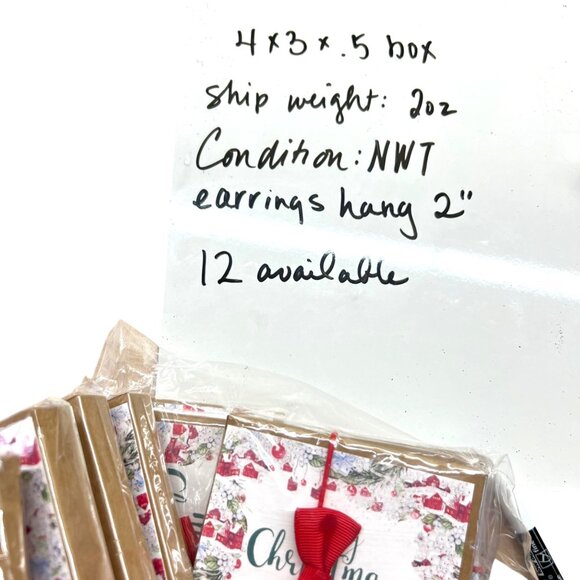 4 x 3 x .5 box
ship weight: 2oz
Condition: NWT
earrings hang 2"
12 available